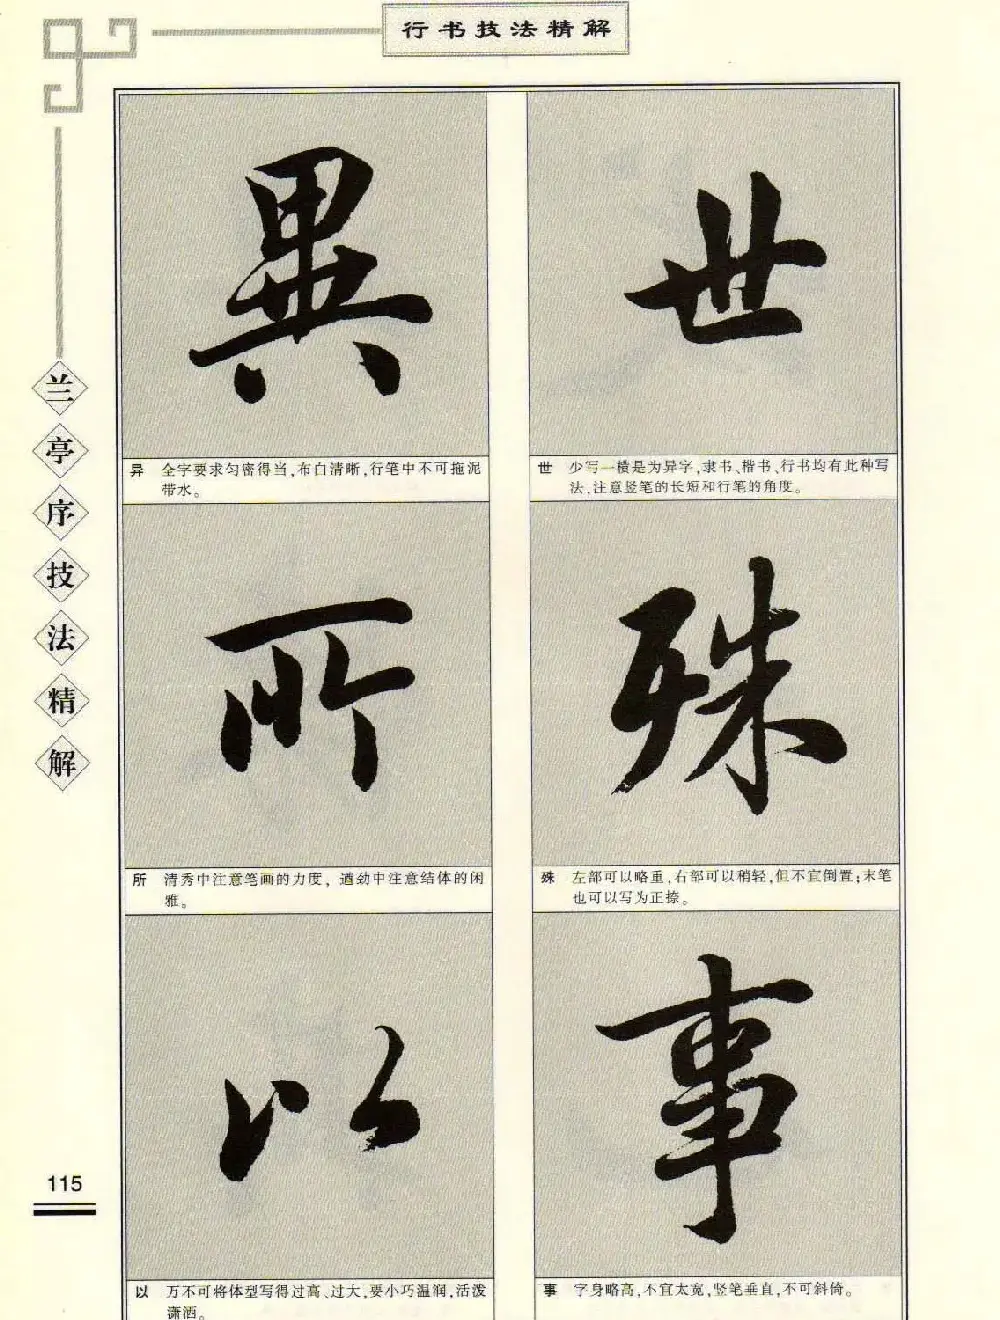 行书技法精解
兰亭序技法精解
世
世 少写一横是为异字,隶书、楷书、行书均有此种写
法,注意竖笔的长短和行笔的角度。
殊
殊 左部可以略重,右部可以稍轻,但不宜倒置;末笔
也可以写为正捺。
事
事 字身略高,不宜太宽,竖笔垂直,不可斜倚。
異
异 全字要求匀密得当,布白清晰,行笔中不可拖泥
带水。
所
所 清秀中注意笔画的力度,遒劲中注意结体的闲
雅。
以
以 万不可将体型写得过高、过大,要小巧温润,活泼
潇洒。
115